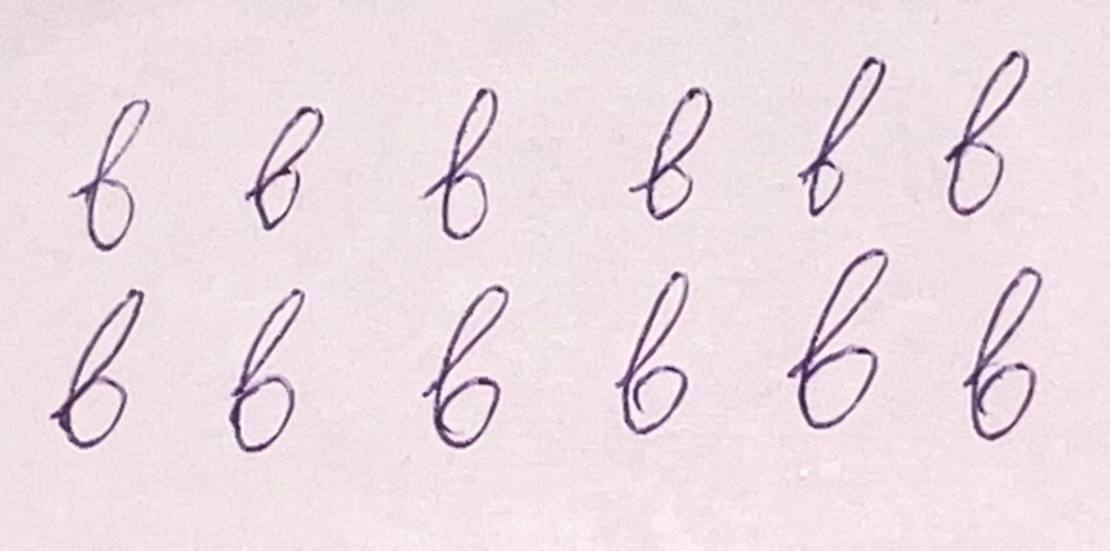 в в в в в в
в в в в в в